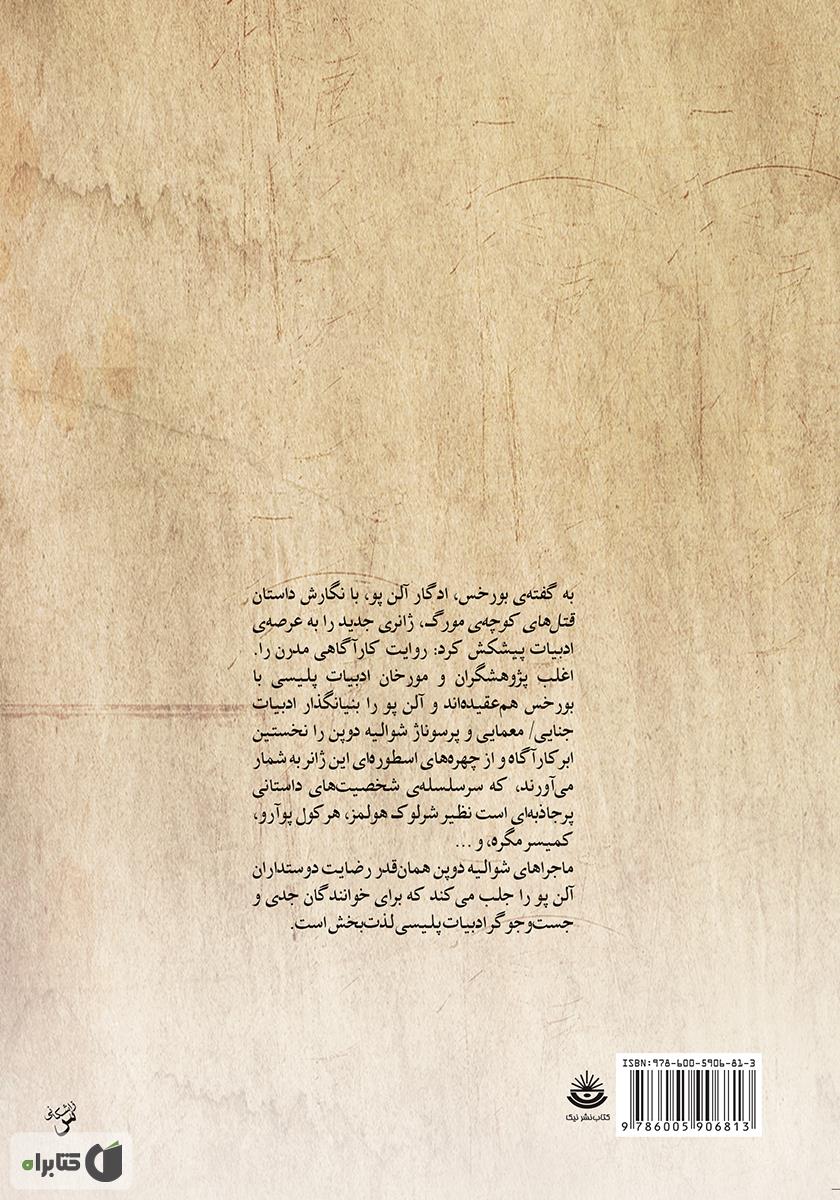 به گفته‌ی بورخس، ادگار آلن پو، با نگارش داستان
قتل‌های کوچه‌ی مورگ، ژانری جدید را به عرصه‌ی
ادبیات پیشکش کرد: روایت کارآگاهی مدرن را.
اغلب پژوهشگران و مورخان ادبیات پلیسی با
بورخس هم‌عقیده‌اند و آلن پو را بنیانگذار ادبیات
جنایی/ معمایی و پرسوناژ شوالیه دوپن را نخستین
ابرکارآگاه و از چهره‌های اسطوره‌ای این ژانر به شمار
می‌آورند، که سرسلسله‌ی شخصیت‌های داستانی
پرجاذبه‌ای است نظیر شرلوک هولمز، هرکول پوآرو،
کمیسر مگره، و ...
ماجراهای شوالیه دوپن همان‌قدر رضایت دوستداران
آلن پو را جلب می‌کند که برای خوانندگان جدی و
جست‌وجوگر ادبیات پلیسی لذت‌بخش است.
ISBN: 978-600-5906-81-3
9 786005 906813
کتاب نشر نیکا
کتابراه